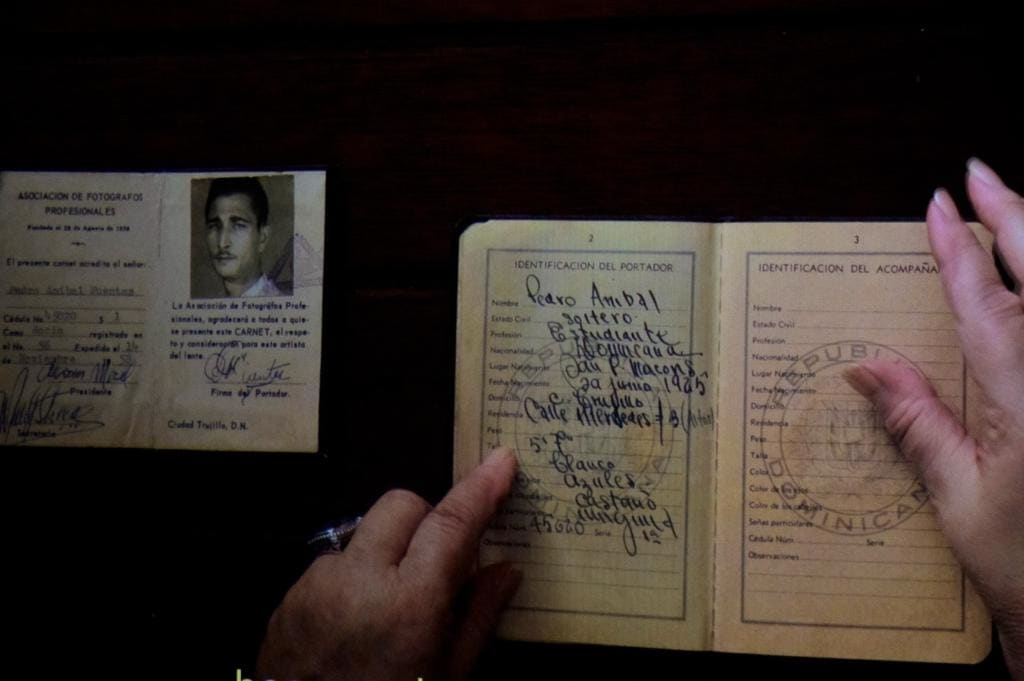 ASOCIACION DE FOTOGRAFOS
PROFESIONALES
Fundada el 26 de Agosto de
El presente carnet acredita al señor:
Pedro Anibal Fuentes
Cédula No. 45020 S. 1
Como Socio registrado en
el No. 56 Expedido el 14
de Noviembre
Presidente
Secretario
La Asociación de Fotógrafos Profe-
sionales, agradecerá a todos a quie-
se presente este CARNET, el respe-
to y consideración para este artista
del lente.
Firma del Portador.
Ciudad Trujillo, D.N.
2
IDENTIFICACION DEL PORTADOR
Nombre Pedro Anibal
Estado Civil soltero
Profesión Estudiante
Nacionalidad Dominicana
Lugar Nacimiento San P. Macorís
Fecha Nacimiento junio
Domicilio C. Trujillo
Residencia Calle Mercedes
Peso
Talla
blanco
azules
castaño
ninguna
Cédula Núm. Serie 1a
Observaciones
3
IDENTIFICACION DEL ACOMPAÑA
Nombre
Estado Civil
Profesión
Nacionalidad
Lugar Nacimiento
Fecha Nacimiento
Domicilio
Residencia
Peso
Talla
Color
Color de los ojos
Color de los cabellos
Señas particulares
Cédula Núm. Serie
Observaciones
REPUBLI
DOMINICAN